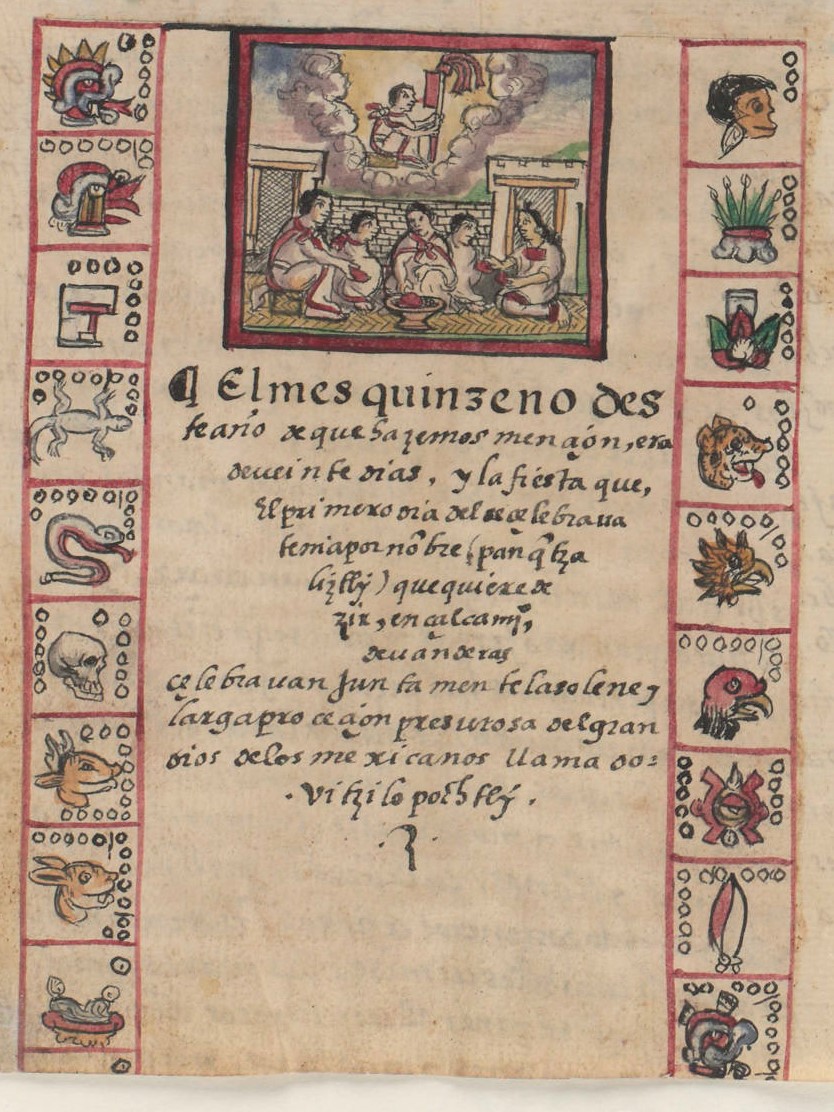 ¶ El mes quinzeno des
te año de que hazemos mençion, era
deveinte dias, y la fiesta que,
El primero dia del se çelebraua
tenia por nōbre (panq̃tza
liztlÿ) que quiere de
zir, en
devanderas
çelebravan Junta mente la solene y
larga proçeçion presurosa del gran
dios de los mexicanos llamado=
· Vitzilopochtlÿ ·